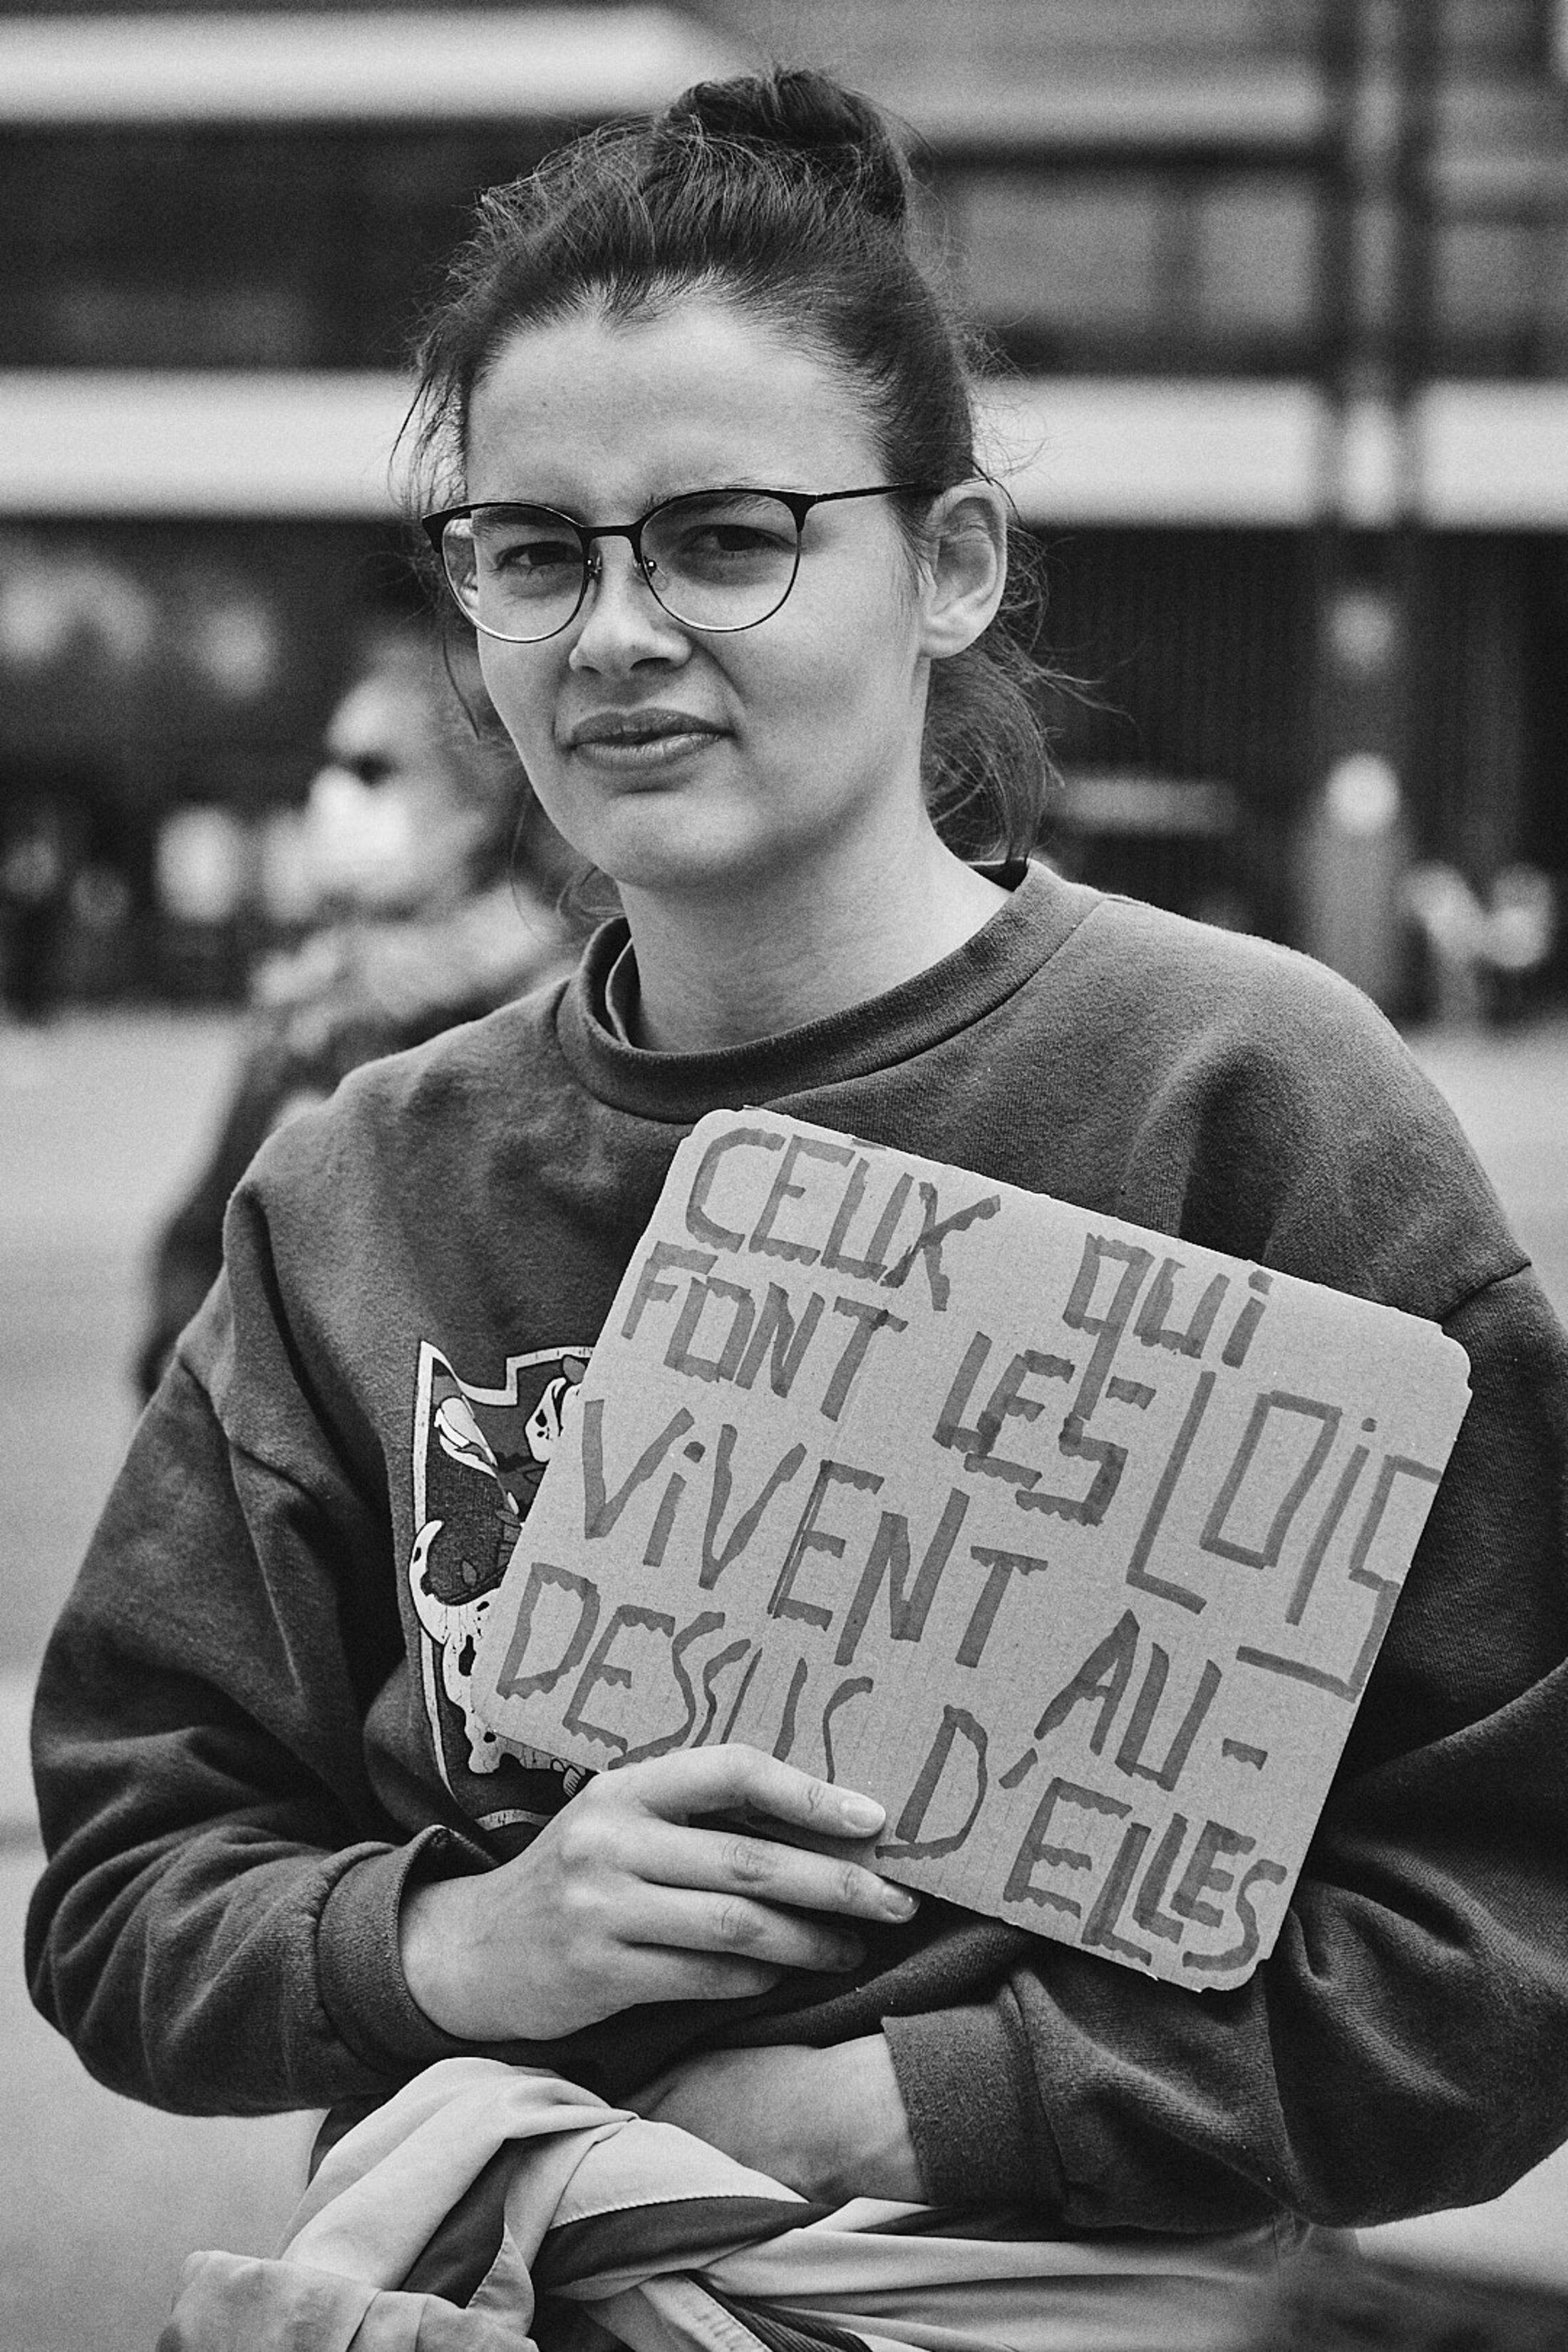 CEUX qUi
FONT LES LOiS
ViVENT AU-
DESSUS D'ELLES